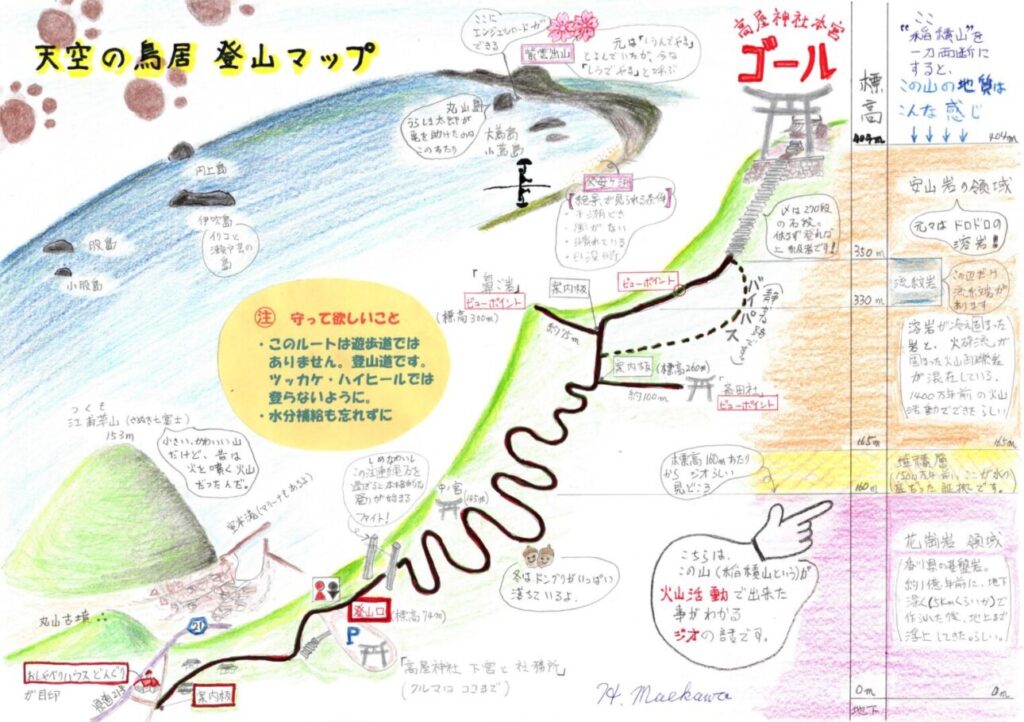 天空の鳥居 登山マップ
ここに
エンジェルロードが
できる
紫雲出山
元は「しうんでやま」
とよんでいたが、今は
「しうでやま」と呼ぶ
高屋神社本宮
ゴール
標高
ここ
"稲積山"を
一刀両断に
すると、
この山の地質は
こんな感じ
404m
404m
丸山島
うらしま太郎が
亀を助けたのは
このあたり
大蔦島
小蔦島
円上島
伊吹島
イリコと
島
股島
小股島
父母ヶ浜
絶景が見られる条件
・干潮どき
・風がない
・晴れている
・日没前
〆は270段
の石段。
休まず登れば
安山岩の領域
元々はドロドロの
溶岩!
350m
流紋岩
この辺だけ
330m
溶岩が冷え固まった
岩と、火砕流が
固まった火山角礫岩
が混在している。
1400万年前の火山
活動でできたらしい
ビューポイント
バイパス
案内板
ビューポイント
(標高300m)
約75m
案内板
(標高260m)
約100m
「高田社」
ビューポイント
注 守って欲しいこと
・このルートは遊歩道では
ありません。登山道です。
ツッカケ・ハイヒールでは
登らないように。
・水分補給も忘れずに
つくも
江甫草山(さぬき七富士)
153m
小さい、かわいい山
だけど、昔は
火を噴く火山
だったんだ。
室本港(マリーナもあるよ)
しめなわいし
この注連縄石を
過ぎると本格的な
登りが始まる
ファイト!
中ノ宮
165m
165m
堆積層
160m
標高160mあたり
から ジオらしい
見どころ
花崗岩 領域
香川県の基盤岩。
約1億年前に、地下
深く(5kmくらいか)で
出来た後、地上まで
浮上してきたらしい。
こちらは、
この山(稲積山という)が
火山活動で出来た
事がわかる
ジオの話です。
冬は、ドングリがいっぱい
落ちているよ。
丸山古墳
21
登山口
(標高74m)
P
「高屋神社 下宮と社務所」
(クルマは ココまで)
おしゃべりハウスどんぐり
が目印
県道21号
案内板
H. Maekawa
0m
0m
地下